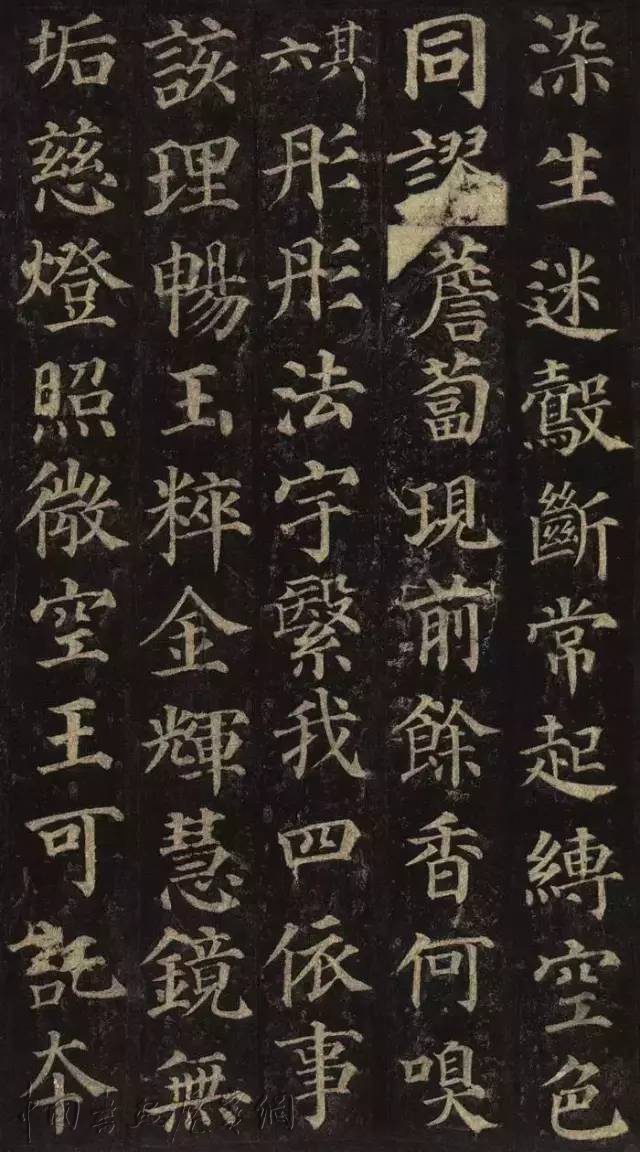 染生迷鷇斷常起縛空色
同謬薝蔔現前餘香何嗅
其六彤彤法宇繄我四依事
該理暢玉粹金輝慧鏡無
垢慈燈照微空王可託本
中國書畫裝裱網